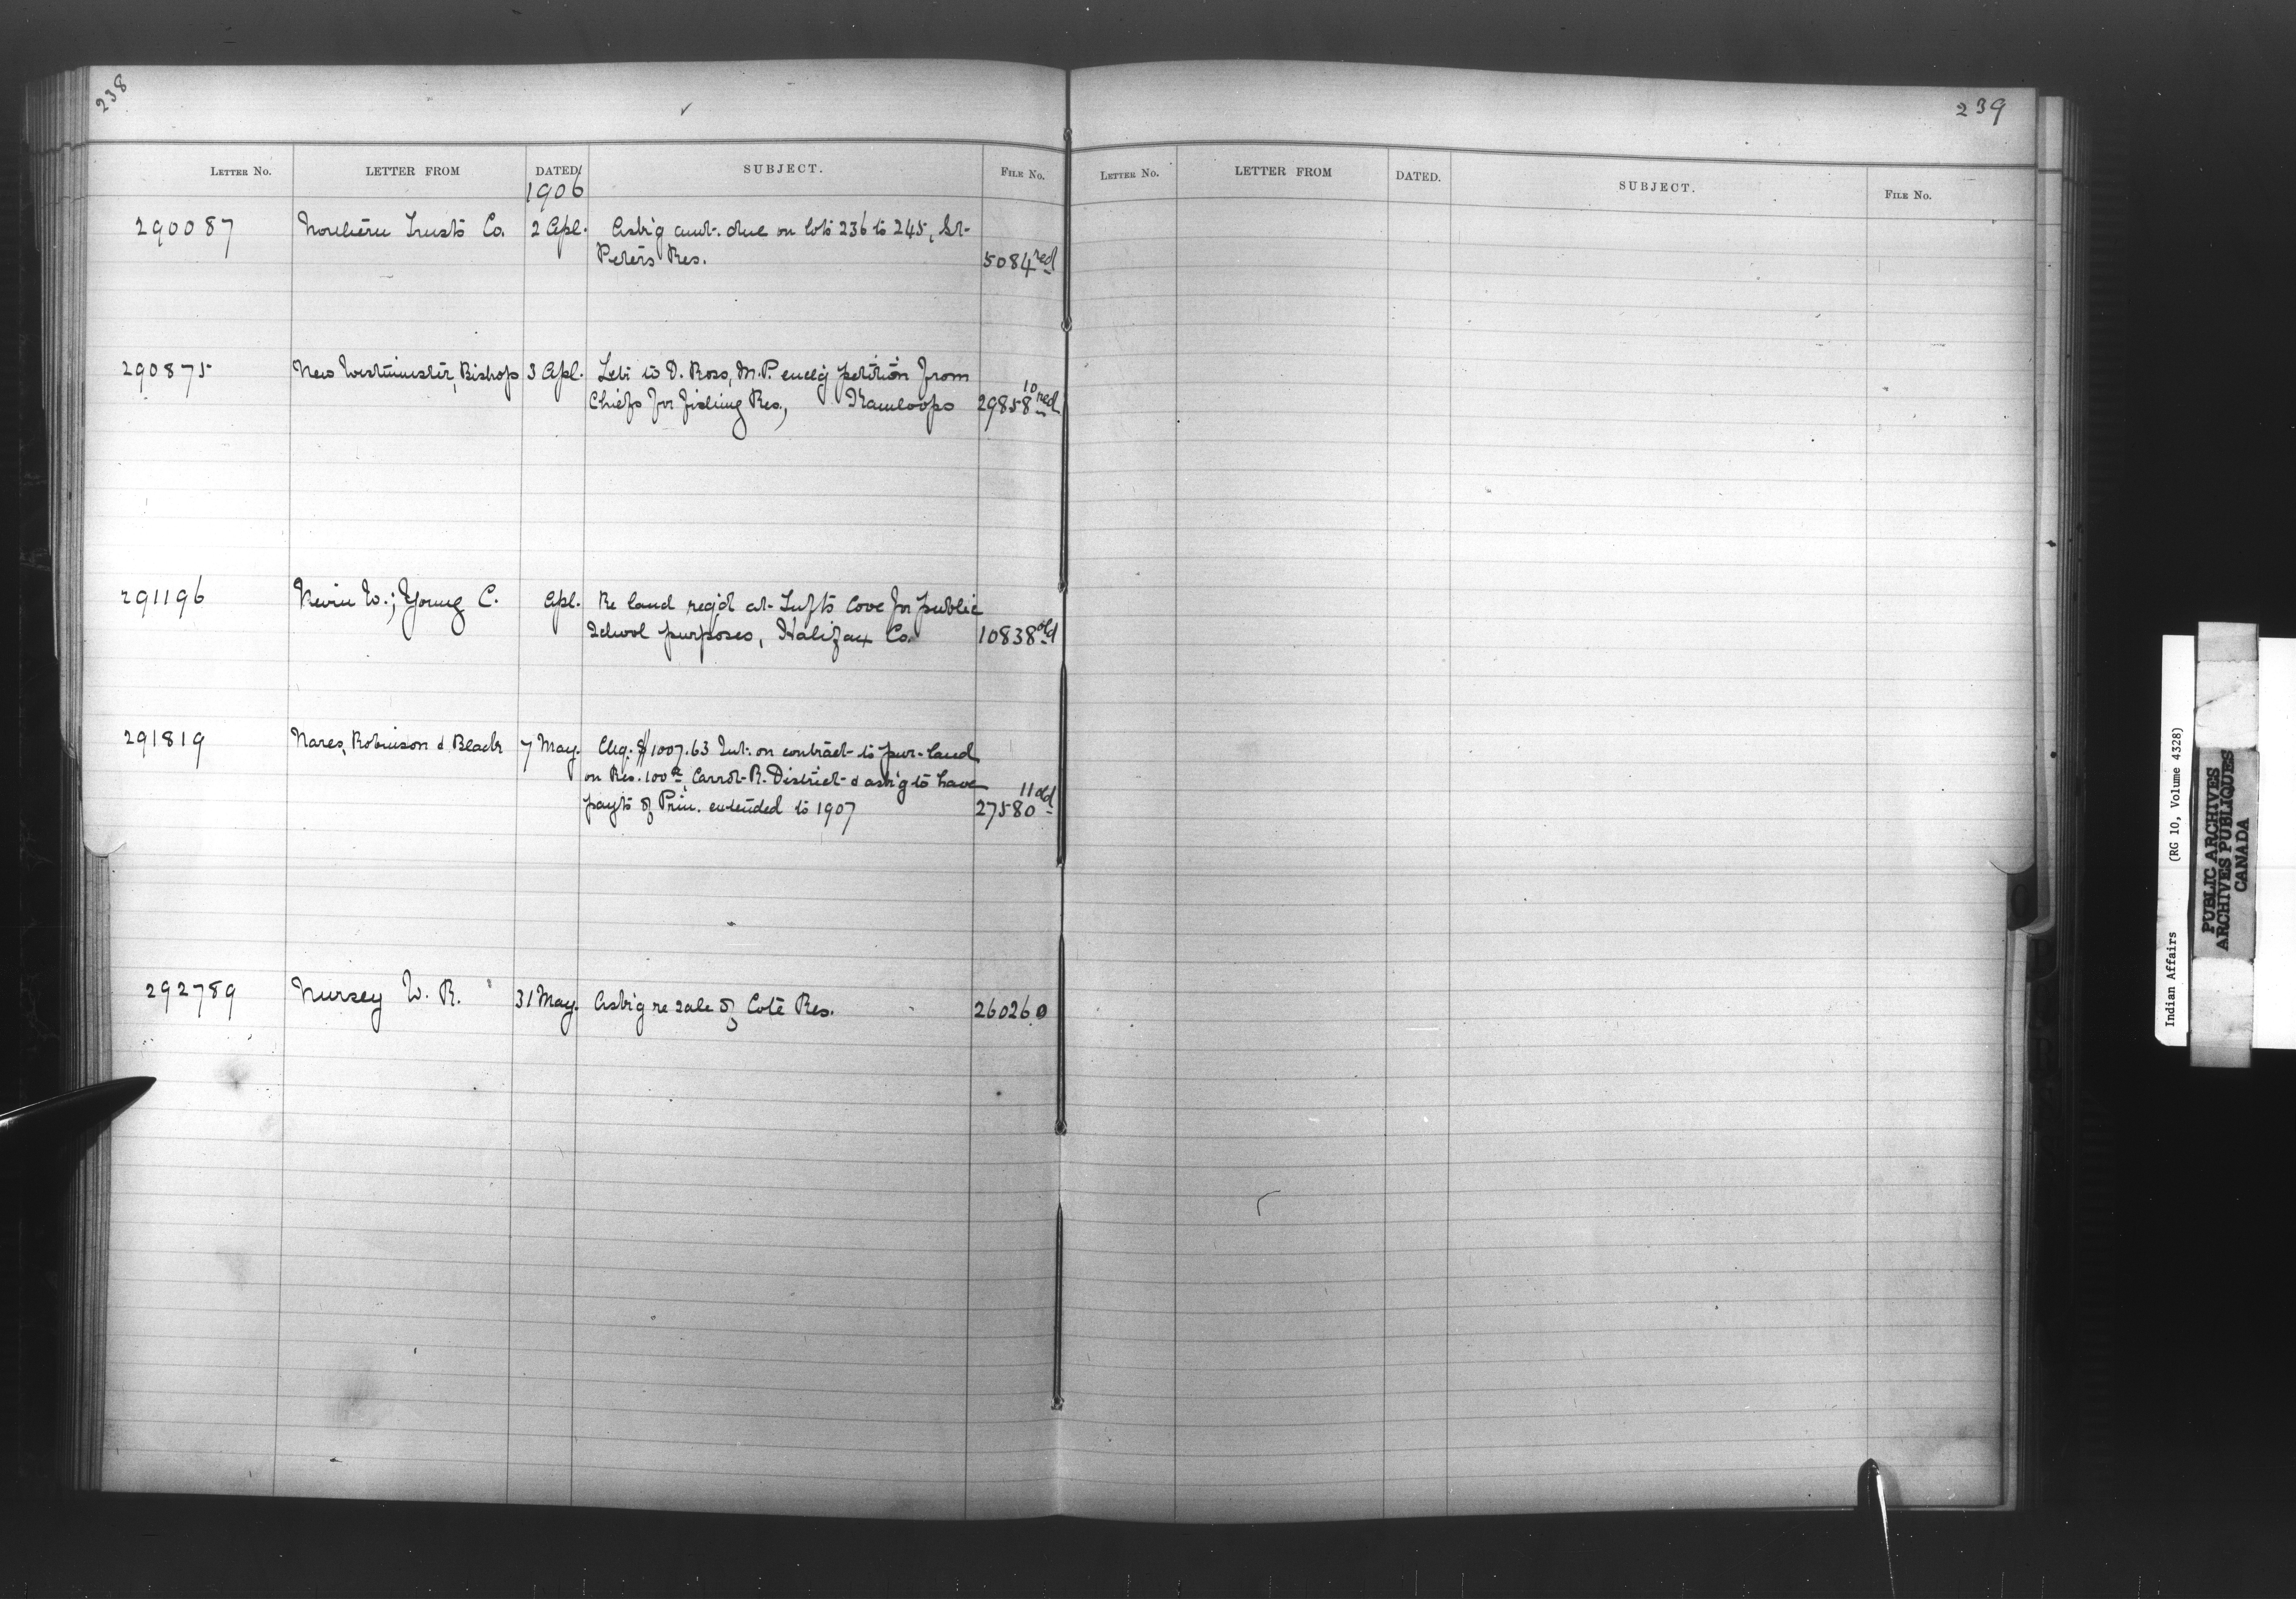 238
239
LETTER NO. LETTER FROM DATED SUBJECT. FILE NO.
1906
290087 Northern Trusts Co. 2 Apl. Ask'g amt. due on lots 236 to 245, St-
Peters Res. 5084 red
290875 New Westminster, Bishop 3 Apl. Letr to D. Ross, M.P. encl'g petition from
Chiefs for fishing Res., Kamloops 29858 10 red
291196 Nevin W.; Young C. Apl. Re land req'd at Tufts Cove for public
School purposes, Halifax Co. 10838 old
291819 Nares, Robinson & Black 7 May. Chq. $1007.63 Int. on contract to pur. land
on Res. 100A, Carrot R. District & ask'g to have
payts of Prin. extended to 1907 27580 11 old
292789 Nursey W. R. 31 May. Ask'g re sale of Cote Res. 260260
LETTER NO. LETTER FROM DATED. SUBJECT. FILE NO.
Indian Affairs (RG 10, Volume 4328)
PUBLIC ARCHIVES
ARCHIVES PUBLIQUES
CANADA